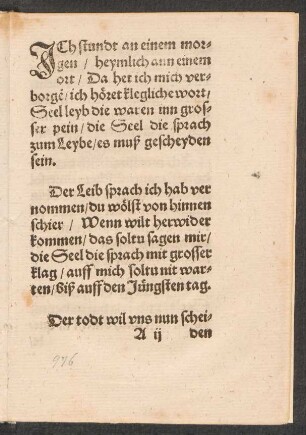 ICh stundt an einem mor-
gen / heymlich ann einem
ort / Da het ich mich ver-
borgē / ich höret klegliche wort /
Seel leyb die waren inn gros-
ser pein / die Seel die sprach
zum Leybe / es muß gescheyden
sein.
Der Leib sprach ich hab ver
nommen / du wölst von hinnen
schier / Wenn wilt herwider
kommen / das soltu sagen mir /
die Seel die sprach mit grosser
klag / auff mich soltu nit war-
ten / biß auff den Jüngsten tag.
Der todt wil vns nun schei-
A ij den
976